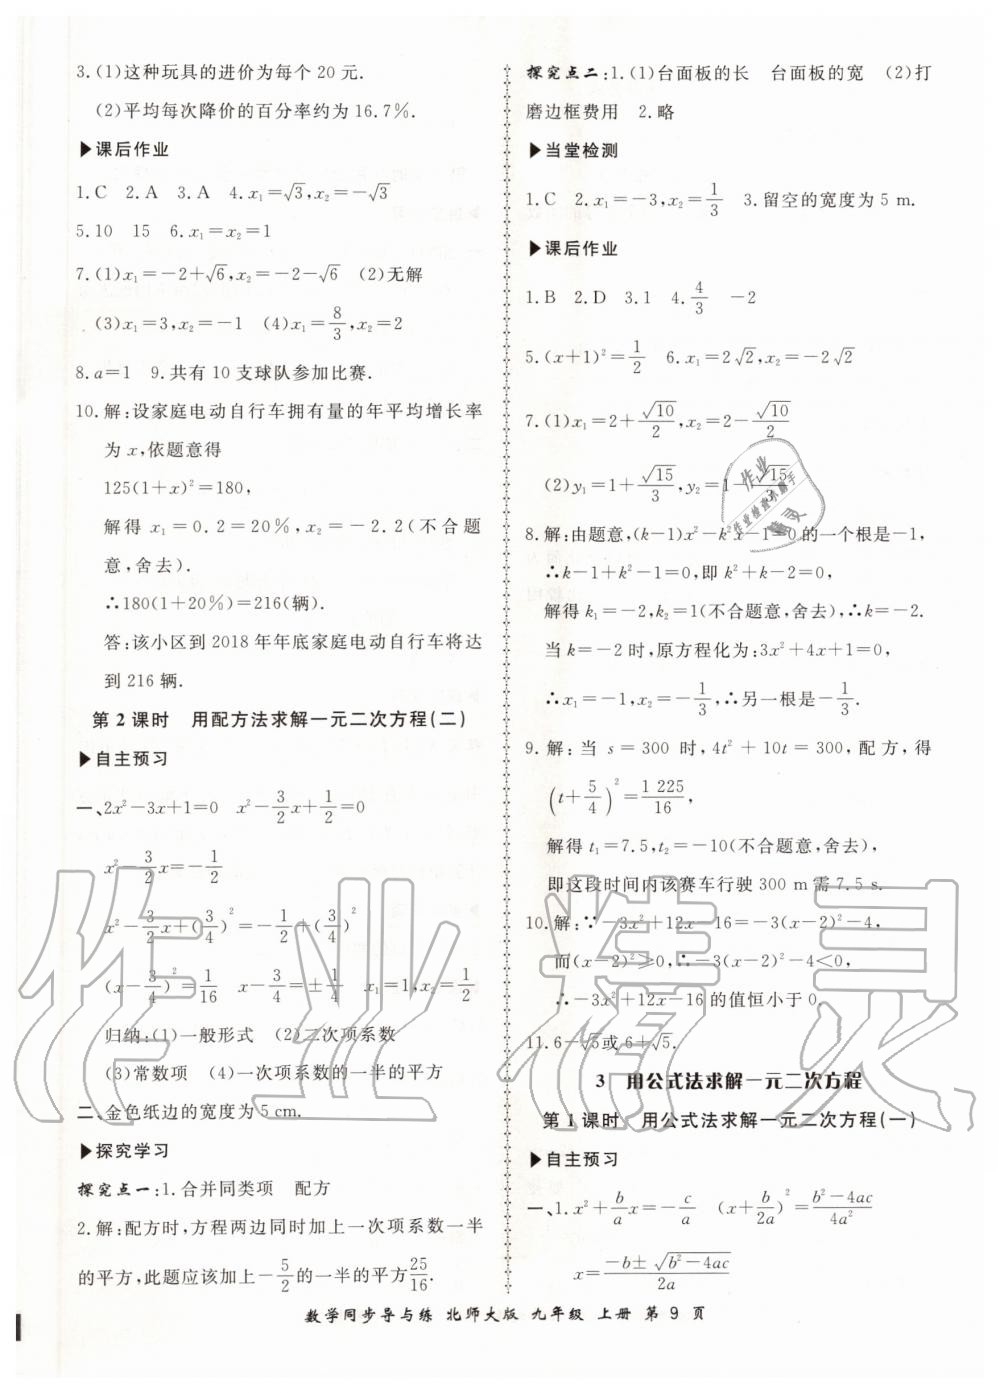 3.(1)这种玩具的进价为每个 20 元.
(2)平均每次降价的百分率约为 16.7%.
▶课后作业
1.C 2.A 3.A 4.x₁=√3,x₂=-√3
5.10 15 6.x₁=x₂=1
7.(1)x₁=-2+√6,x₂=-2-√6 (2)无解
(3)x₁=3,x₂=-1 (4)x₁=8/3,x₂=2
8.a=1 9.共有 10 支球队参加比赛.
10.解:设家庭电动自行车拥有量的年平均增长率
为 x,依题意得
125(1+x)²=180,
解得 x₁=0.2=20%,x₂=-2.2(不合题
意,舍去).
∴180(1+20%)=216(辆).
答:该小区到 2018 年年底家庭电动自行车将达
到 216 辆.
第 2 课时 用配方法求解一元二次方程(二)
▶自主预习
一、2x²-3x+1=0 x²-3/2x+1/2=0
x²-3/2x=-1/2
x²-3/2x+(3/4)²=-1/2+(3/4)²
(x-3/4)²=1/16 x-3/4=±1/4 x₁=1,x₂=1/2
归纳:(1)一般形式 (2)二次项系数
(3)常数项 (4)一次项系数的一半的平方
二、金色纸边的宽度为 5 cm.
▶探究学习
探究点一:1.合并同类项 配方
2.解:配方时,方程两边同时加上一次项系数一半
的平方,此题应该加上-5/2的一半的平方25/16.
探究点二:1.(1)台面板的长 台面板的宽 (2)打
磨边框费用 2.略
▶当堂检测
1.C 2.x₁=-3,x₂=1/3 3.留空的宽度为 5 m.
▶课后作业
1.B 2.D 3.1 4.4/3 -2
5.(x+1)²=1/2 6.x₁=2√2,x₂=-2√2
7.(1)x₁=2+√10/2,x₂=2-√10/2
(2)y₁=1+√15/3,y₂=1-√15/3
8.解:由题意,(k-1)x²-k²x-1=0的一个根是-1,
∴k-1+k²-1=0,即 k²+k-2=0,
解得 k₁=-2,k₂=1(不合题意,舍去),∴k=-2.
当 k=-2 时,原方程化为:3x²+4x+1=0,
∴x₁=-1,x₂=-1/3,∴另一根是-1/3.
9.解:当 s=300 时,4t²+10t=300,配方,得
(t+5/4)²=1 225/16,
解得 t₁=7.5,t₂=-10(不合题意,舍去),
即这段时间内该赛车行驶 300 m 需 7.5 s.
10.解:∵-3x²+12x-16=-3(x-2)²-4,
而(x-2)²≥0,∴-3(x-2)²-4<0,
∴-3x²+12x-16 的值恒小于 0.
11.6-√5或 6+√5.
3 用公式法求解一元二次方程
第 1 课时 用公式法求解一元二次方程(一)
▶自主预习
一、1.x²+b/ax=-c/a (x+b/2a)²=b²-4ac/4a²
x=-b±√b²-4ac/2a
数学同步导与练 北师大版 九年级 上册 第 9 页
作业精灵